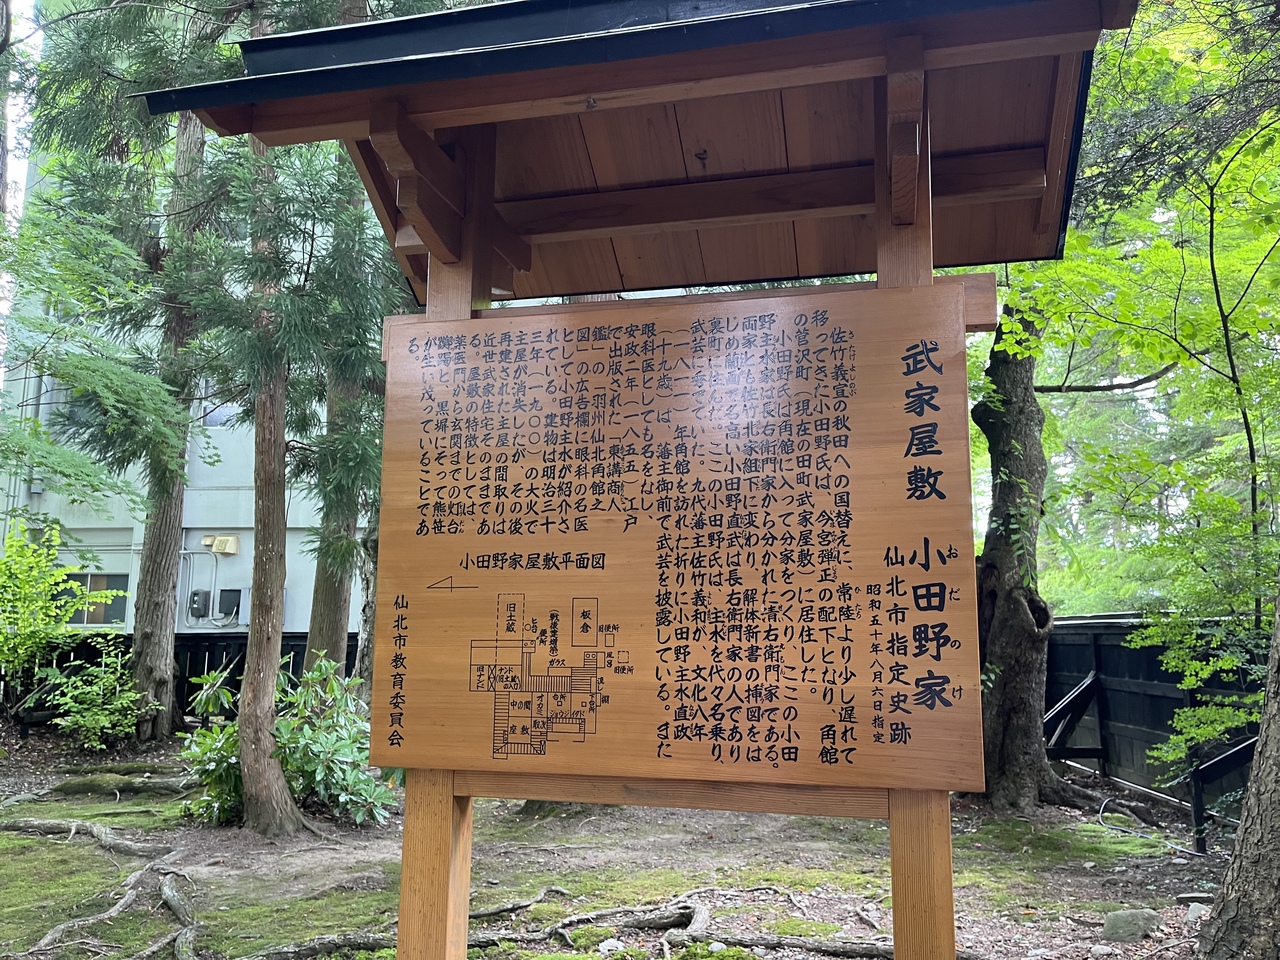 武家屋敷 小田野家
おだのけ
仙北市指定史跡
昭和五十年八月六日指定
佐竹義宣の秋田への国替えに、常陸より少し遅れて
さたけよしのぶ
ひたち
移ってきた小田野氏は、今宮弾正の配下となり、角館
の菅沢町(現在の田町武家屋敷)に居住した。
小田野氏は角館に入って分家をつくり、ここの小田
野主水家は長右衛門家から分かれた清右衛門家である。
両家とも佐竹北家組下に変わり、解体新書の挿図をは
じめ蘭画で名高い小田野直武は長右衛門家の人であり
裏町に住んだ。この小田野氏は、主水を代々名乗り、
武芸に秀でていた。九代藩主佐竹義和が、文化八年
(一八一一)年角館を訪れた折りに小田野主水直政
(十九歳)は、藩主御前で武芸を披露している。また
眼科医としても名をはし、
安政二年(一八五五)江戸
で出版された「東講商人
鑑」の「羽州仙北角館之
図」の広告欄に眼科の名医
として小田野主水が紹介さ
れている。建物は明治三十
三年(一九〇〇)の大火で
主屋が消失したが、その後
再建された主屋の間取りは
近世武家住宅そのままであ
る。屋敷の特徴としては、
薬医門から玄関までの灯台
躑躅と、黒塀にそって熊笹
が生い茂っていることであ
る。
小田野家屋敷平面図
旧土蔵
板倉
旧便所
ヒロ
便所
(戦後増築)
ガラス
風呂
旧便所
旧ナンド
ナンド
(旧土蔵への入口)
中の間
オカミ
台所
座敷
取次
仙北市教育委員会